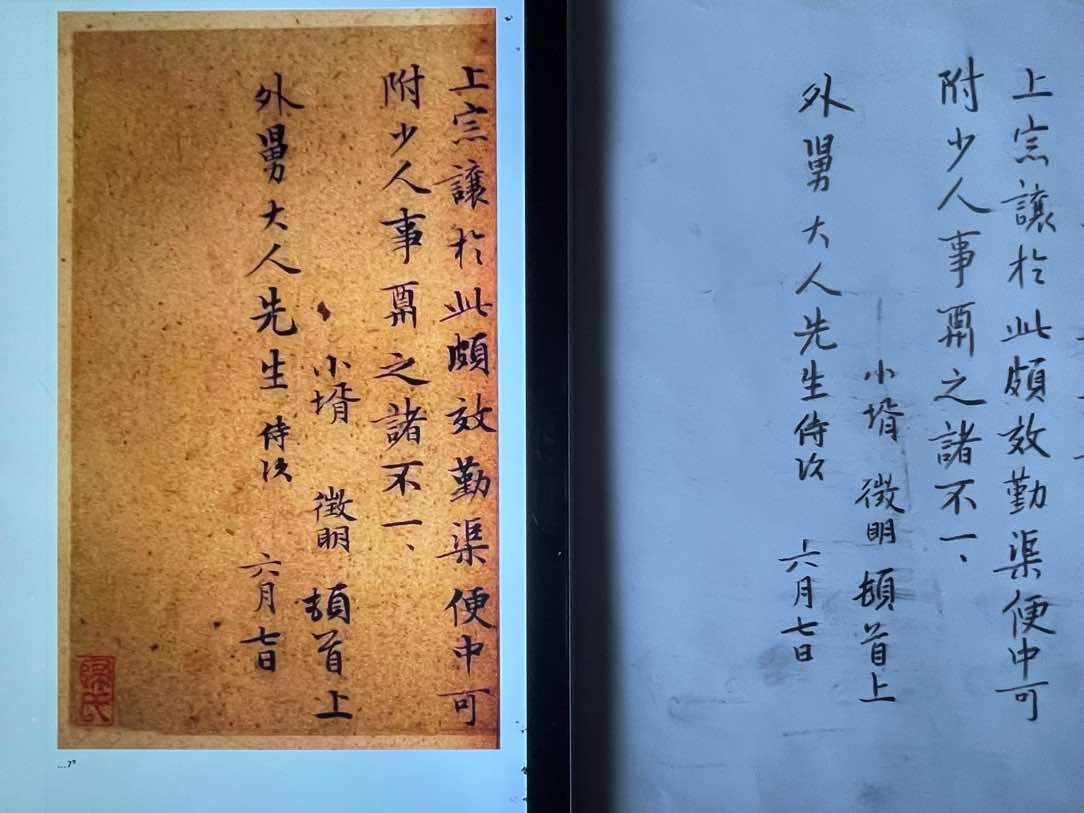 上宗讓於此頗效勤渠便中可
附少人事鬻之諸不一、
小壻 徵明 頓首上
外舅大人先生侍次
六月七日
上宗讓於此頗效勤渠便中可
附少人事鬻之諸不一、
小壻 徵明 頓首上
外舅大人先生侍次
六月七日